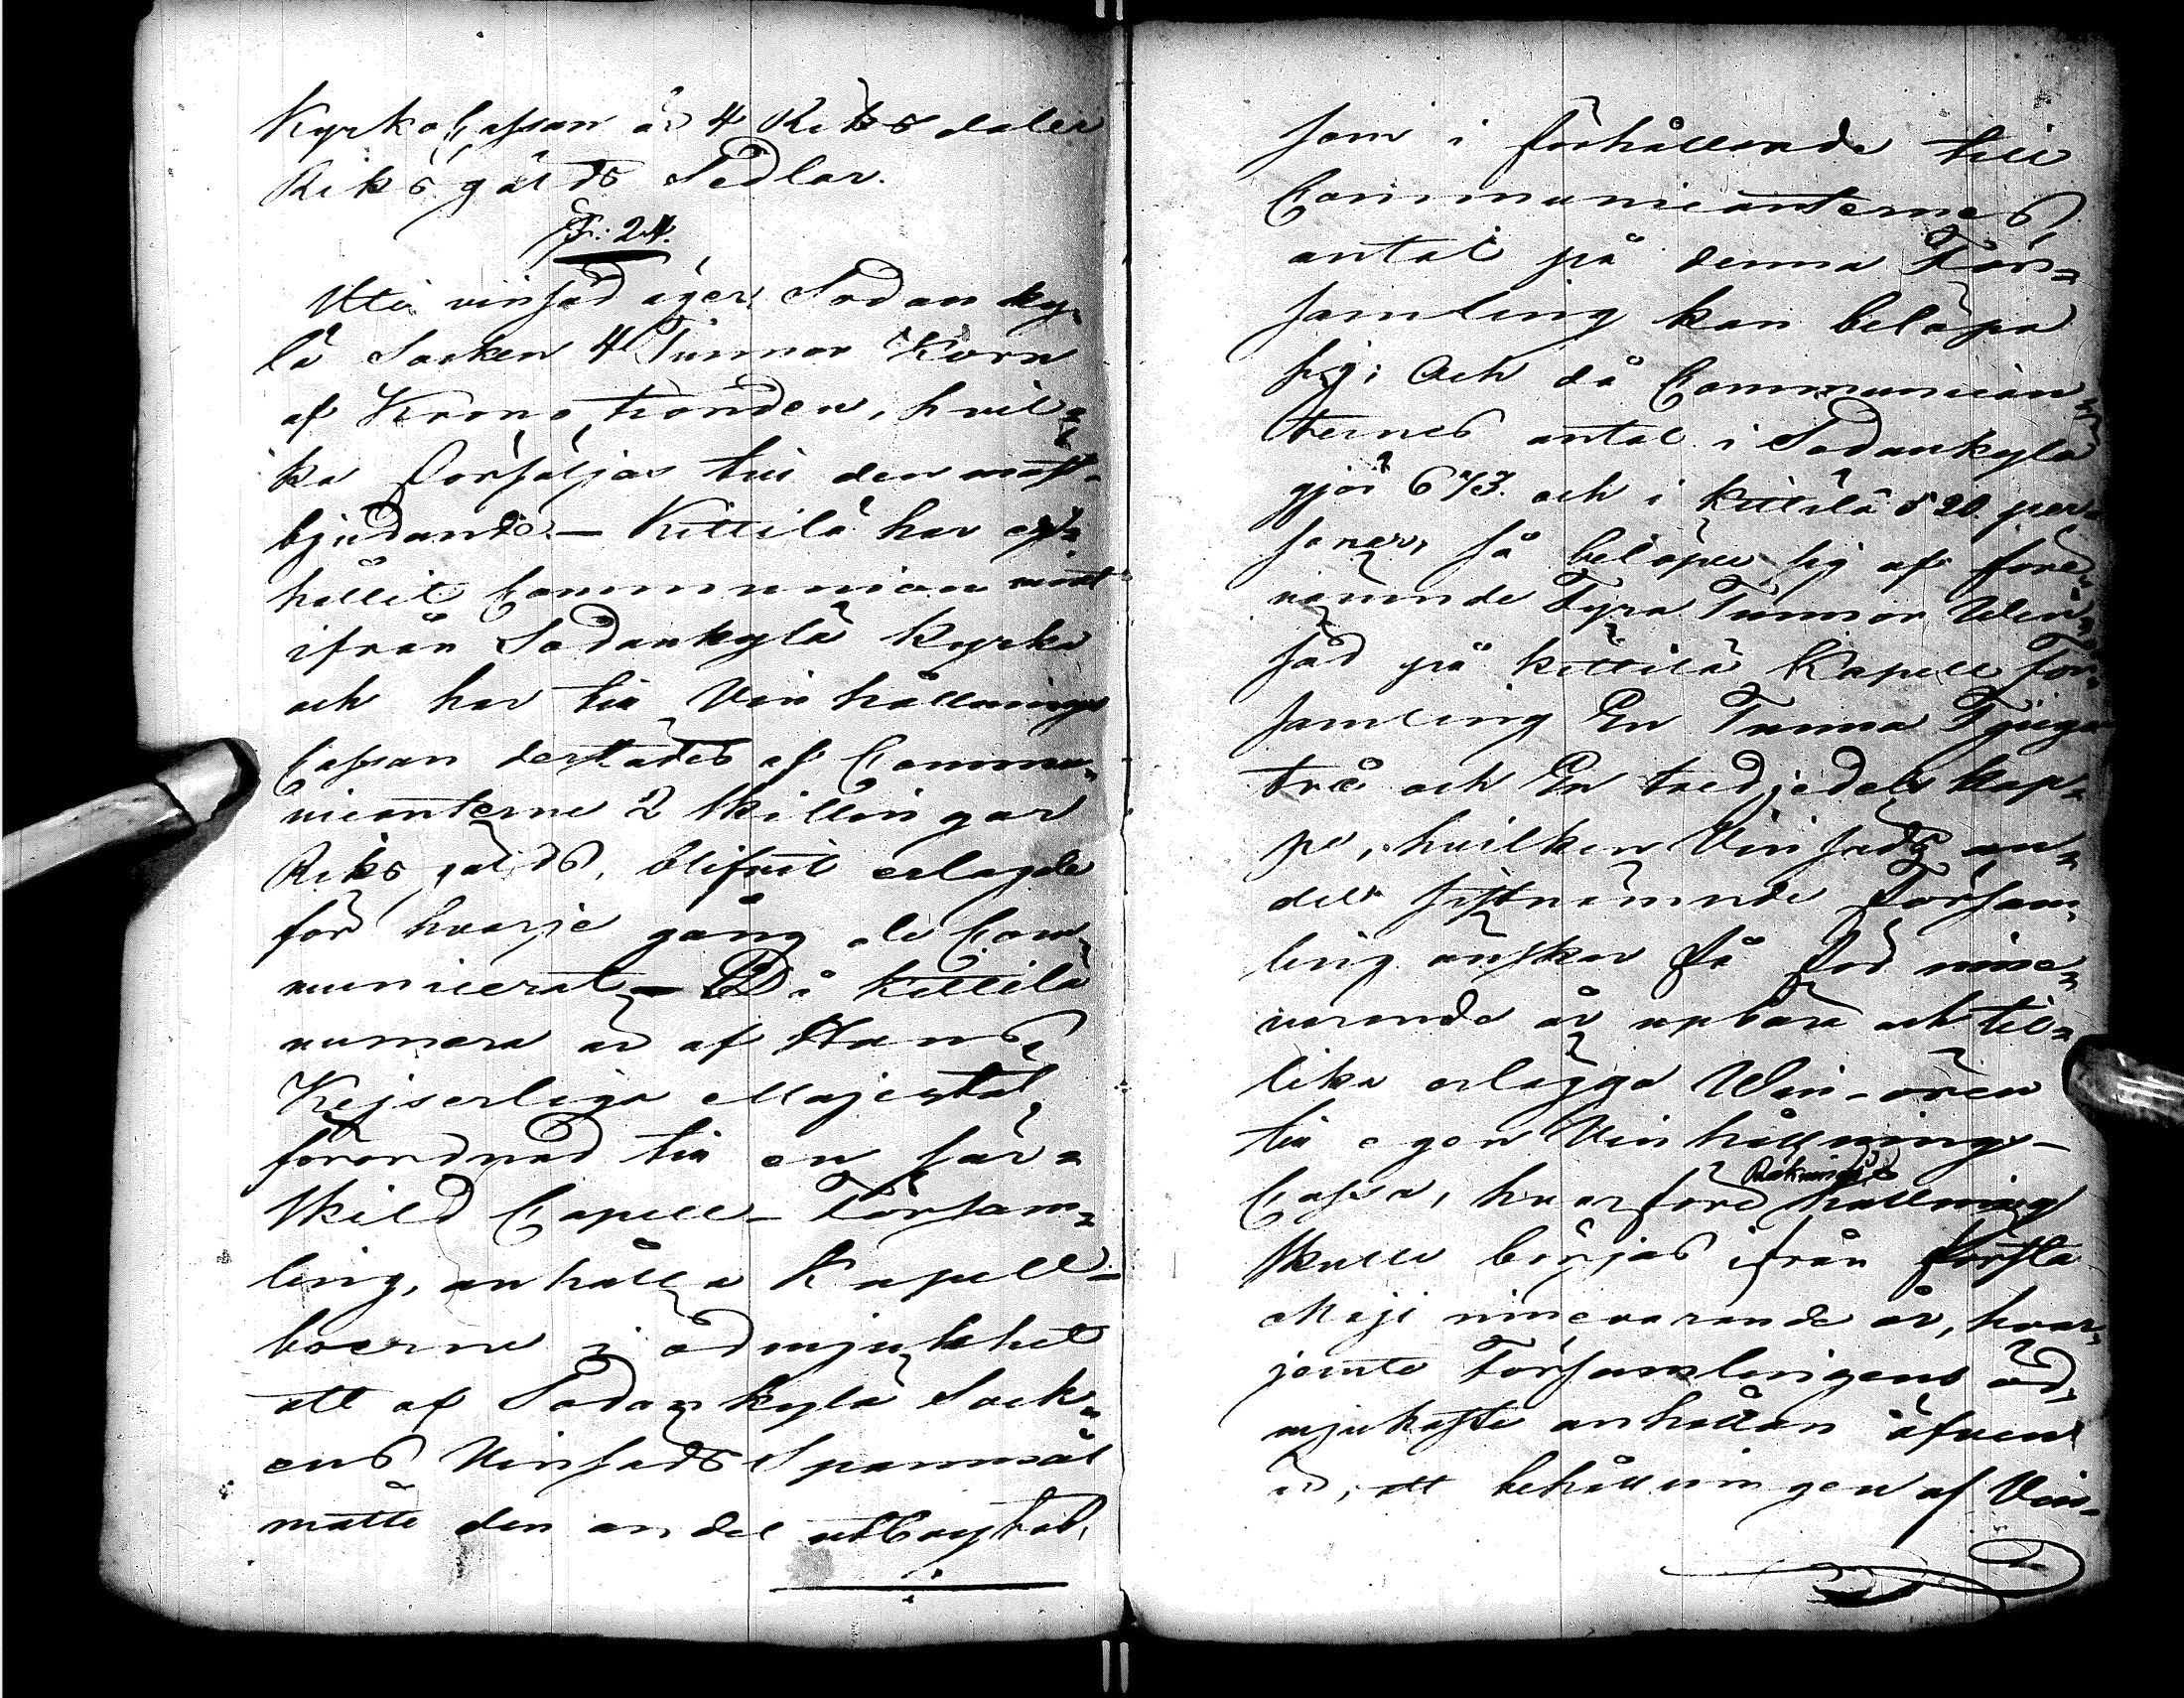 Kyrko Cassan är 4 Riksdaler
Riksgälds Sedlar.
§: 24.
Uti vinsäd äger Sodanky-
lä Socken 4 Tunnor Korn
af Krono tionden, hvil-
ka försäljas till den mäst-
bjudande. — Kittilä har er-
hållit Communion vin
ifrån Sodankylä Kyrka
och har till Vinhållnings
Cassan derstädes af Commu-
nicanterne 2 Skillingar
Riksgälds, blifvit erlagde
för hvarje gång de Com-
municerat — Då Kittilä
numera är af Hans
Kejserliga Majestät
förordnad till en sär-
skild Capell-Försam-
ling, anhålla Kapell-
boerne i ödmjukhet
att af Sodankylä Sock-
ens Vinsäds Spannmål
måtte den andel utbrytas,
som i förhållande till
Communicanternes
antal på denna För-
samling kan belöpa
sig; Och då Communican-
ternes antal i Sodankylä
gjör 673. och i Kittilä 520. per-
soner, så belöper sig af före-
nämnde Fyra Tunnor Vin-
säd på Kittilä Kapell För-
samling En Tunna Tjugu
tre och En tredjedels kap-
pe, hvilken Vinsäds an-
del sistnämnde Försam-
ling önskar få för inne-
varande år upbära och til-
lika erlägga Vin-ören
till egen Vinhållnings-
Cassa, hvarföre Räknings
hållning
skulle börjas ifrån första
Maji innevarande år, hvar-
jemte Församlingens öd-
mjukaste anhållan äfven
är, att behållningen af Vin-